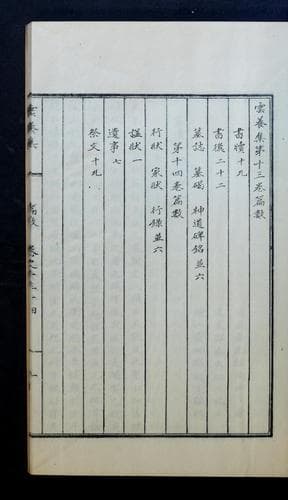 雲養集第十三卷篇數
書牘十九
書後二十二
墓誌 墓碣 神道碑銘並六
第十四卷篇數
行狀 家狀 行錄並六
諡狀一
遺事七
祭文十九
雲養集
篇數